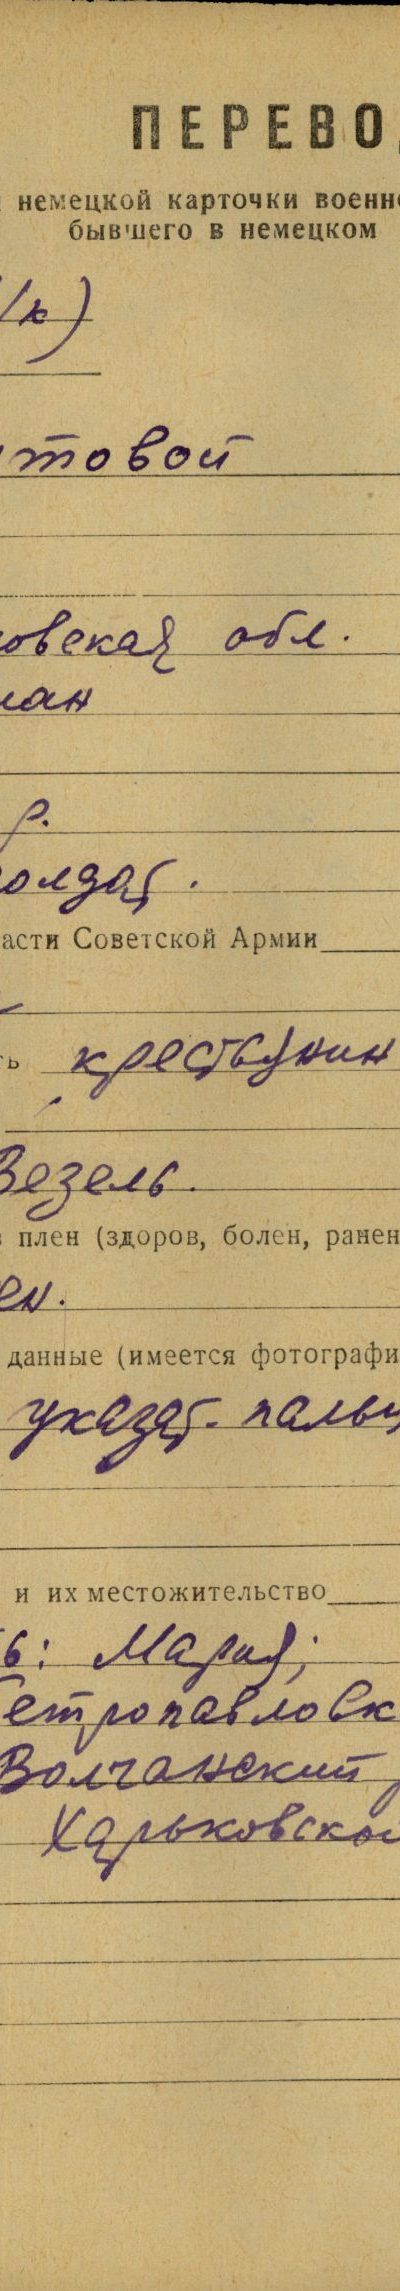 ПЕРЕВО
немецкой карточки военн
бывшего в немецком
/к)
товой
овская обл.
ман
р.
олдат.
асти Советской Армии
ть крестьянин
Везель.
в плен (здоров, болен, ранен
ен.
данные (имеется фотографи
указат. паль
и их местожительство
ь: Мария;
етропавловк
Волчанский
Харьковской